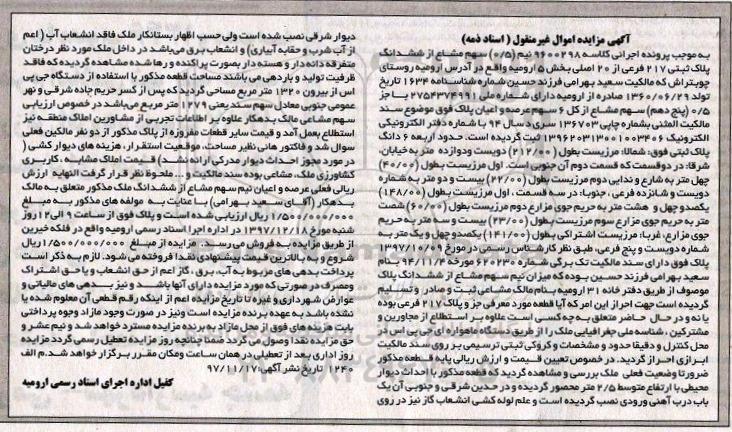 آگهی مزایده اموال غیرمنقول ( اسناد ذمه)
به موجب پرونده اجرائی کلاسه ۹۶۰۰۲۹۸ نیم (۰/۵) سهم مشاع از ششدانگ
پلاک ثبتی ۲۱۷ فرعی از ۲۰ اصلی بخش ۵ ارومیه واقع در آدرس ارومیه روستای
چوبتراش که مالکیت سعید بهرامی فرزند حسین شماره شناسنامه ۱۶۳۴ تاریخ
تولد ۱۳۶۰/۰۶/۲۹ صادره از ارومیه دارای شماره ملی ۲۷۵۴۳۷۴۹۹۱ با جز
۰/۵ (پنج دهم) سهم مشاع از کل ۶ سهم عرصه و اعیان پلاک فوق موضوع سند
مالکیت المثنی بشماره چاپی ۱۳۶۷۰۳ سری د سال ۹۴ با شماره دفتر الکترونیکی
الکترونیک ۱۳۹۶۲۰۳۱۳۰۰۱۰۰۳۴۰۶ ثبت گردیده است. حدود اربعه ۶ دانگ
پلاک ثبتی فوق: شمالا: مرزیست بطول (۲۱۲/۰۰) دویست و دوازده متر به خیابان،
شرقا: در دوقسمت که قسمت دوم آن جنوبی است. اول مرزیست بطول (۴۰/۰۰)
چهل متر به شارع و ندایی دوم مرزیست بطول (۲۲/۰۰) بیست و دو متر به شماره
دویست و شانزده فرعی، جنوبا: در سه قسمت ، اول مرزیست بطول (۱۴۸/۰۰)
یکصدو چهل و هشت متر به حریم جوی مزارع دوم مرزیست بطول (۶۰/۰۰) شصت
متر به حریم جوی مزارع سوم مرزیست بطول (۲۳/۰۰) بیست و سه متر به حریم
جوی مزارع، غربا: مرزیست اشتراکی بطول (۱۴۱/۰۰) یکصدو چهل و یک متر به
شماره دویست و پنج فرعی، طبق نظر کارشناس رسمی در مورخ ۱۳۹۷/۱۰/۰۹
پلاک فوق دارای سند مالکیت تک برگی شماره ۶۲۰۲۳۰ مورخه ۹۴/۱۱/۴ بنام
سعید بهرامی فرزند حسین بوده که میزان نیم سهم مشاع از ششدانگ پلاک
موصوف از طریق دفتر خانه ۳۱ ارومیه بنام مالک مشاعی ثبت و صادر و تسلیم
گردیده است جهت احراز این امر که آیا قطعه مورد معرفی جز و پلاک ۲۱۷ فرعی بوده
یا نه و در حال حاضر متعلق به چه کسی است علاوه بر استطلاع از مجاورین و
مشترکین ، شناسه ملی جغرافیایی ملک را از طریق دستگاه ماهواره ای جی پی اس در
محل کنترل و دقیقا حدود و مشخصات و کروکی ثبتی ترسیمی بر روی سند مالکیت
ابرازی احراز گردید. در خصوص تعیین قیمت و ارزش ریالی پایه قطعه مذکور
ضرورتا وضعیت فعلی ملک بررسی و مشاهده گردید که قطعه مذکور با احداث دیوار
محیطی با ارتفاع متوسط ۲/۵ متر محصور گردیده و در حدین شرقی و جنوبی آن یک
باب درب آهنی ورودی نصب گردیده است و علم لوله کشی انشعاب گاز نیز در روی
دیوار شرقی نصب شده است ولی حسب اظهار بستانکار ملک فاقد انشعاب آب (اعم
از آب شرب و حقابه آبیاری) و انشعاب برق می‌باشد در داخل ملک مورد نظر درختان
متفرقه دانه دار و هسته دار بصورت پراکنده و رها شده مشاهده گردیده که فاقد
ظرفیت تولید و باردهی می باشند مساحت قطعه مذکور با استفاده از دستگاه جی پی
اس از بیرون ۱۳۲۰ متر مربع مساحی گردید که پس از کسر حریم جاده شرقی و نهر
عمومی جنوبی معادل سهم سند یعنی ۱۲۷۹ متر مربع می‌باشد در خصوص ارزیابی
سهم مشاعی مالک بدهکار علاوه بر اطلاعات تجربی از مشاورین املاک منطقه نیز
استطلاع بعمل آمد و قیمت سایر قطعات مفروزه از پلاک مذکور از دو نفر مالکین فعلی
سوال شد و فاکتور هائی نظیر مساحت، موقعیت استقرار ، هزینه های دیوار کشی (
در مورد مجوز احداث دیوار مدرکی ارائه نشد) قیمت املاک مشابه ، کاربری
کشاورزی ملک، مشاعی بوده سند مالکیت و ... ملحوظ نظر قرار گرفت النهایه ارزش
ریالی فعلی عرصه و اعیان نیم سهم مشاع از ششدانگ ملک مذکور متعلق به مالک
بدهکار (آقای سعید بهرامی) با عنایت به مولفه های مذکور به مبلغ
۱/۵۰۰/۰۰۰/۰۰۰ ریال ارزیابی شده است و پلاک فوق از ساعت ۹ الی ۱۲ روز
شنبه مورخ ۱۳۹۷/۱۲/۱۸ در اداره اجرا اسناد رسمی ارومیه واقع در فلکه خیرین
از طریق مزایده به فروش می رسد. مزایده از مبلغ ۱/۵۰۰/۰۰۰/۰۰۰ ریال
شروع و به بالاترین قیمت پیشنهادی نقدا فروخته می شود. لازم به ذکر است
پرداخت بدهی های مربوط به آب، برق ، گاز اعم از حق انشعاب و یا حق اشتراک
ومصرف در صورتی که مورد مزایده دارای آنها باشد و نیز بدهی های مالیاتی و
عوارض شهرداری و غیره تا تاریخ مزایده اعم از اینکه رقم قطعی آن معلوم شده یا
نشده باشد به عهده برنده مزایده است ونیز در صورت وجود مازاد وجوه پرداختی
بابت هزینه های فوق از محل مازاد به برنده مزایده مسترد خواهد شد و نیم عشر و
حق مزایده نقدا وصول می گردد ضمنا چنانچه روز مزایده تعطیل رسمی گردد مزایده
روز اداری بعد از تعطیلی در همان ساعت ومکان مقرر برگزار خواهد شد. م الف
۱۲۴۰ تاریخ نشر آگهی: ۹۷/۱۱/۱۷
کفیل اداره اجرای اسناد رسمی ارومیه